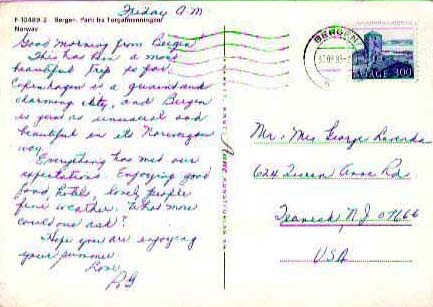 Friday A.M
F 12489-2 Bergen. Parti fra Torgalmenningen
Norway
Good morning from Bergen
This has been a most
beautiful trip so far.
Copenhagen is a quaint and
charming city, and Bergen
is just as unusual and
beautiful in its Norwegian
way.
Everything has met our
expectations. Enjoying good
food, hotels, lovely people
fine weather. What more
could one ask?
Hope you are enjoying
your summer.
Love,
BERGEN
NORGE 300
Mr. Mrs George
624 Queen Anne Rd.
Teaneck N.J. 07666
USA